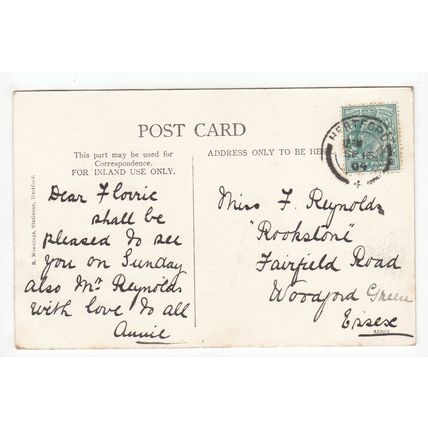 POST CARD
This part may be used for
Correspondence.
FOR INLAND USE ONLY.
ADDRESS ONLY TO BE HERE
HERTFORD
SP 16
Dear Florrie
shall be
pleased to see
you on Sunday
also Mr Reynolds
with love to all
Annie
Miss F. Reynolds
"Rookstone"
Fairfield Road
Woodford Green
Essex
Stationer, Hertford.